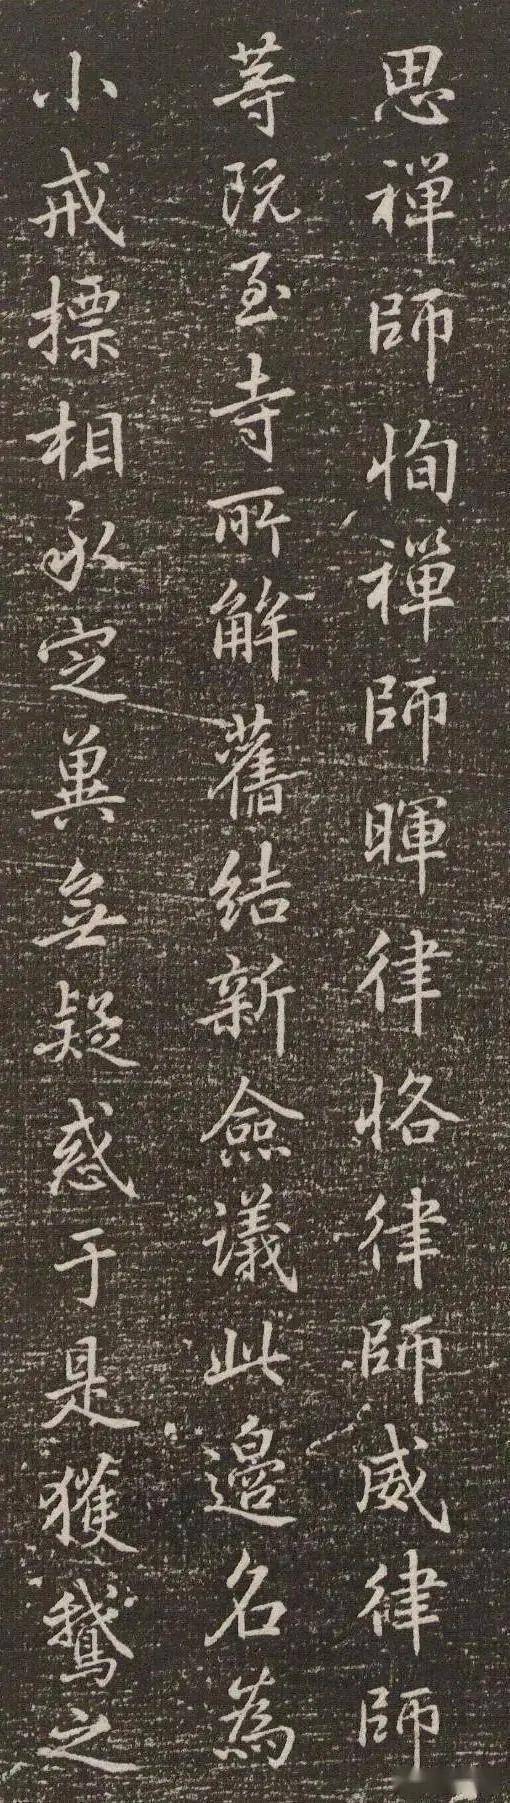 思禪師恂禪師暉律恪律師威律師
等既至寺所解舊結新僉議此邊名為
小戒摽相永定冀無疑惑于是獲鵝之